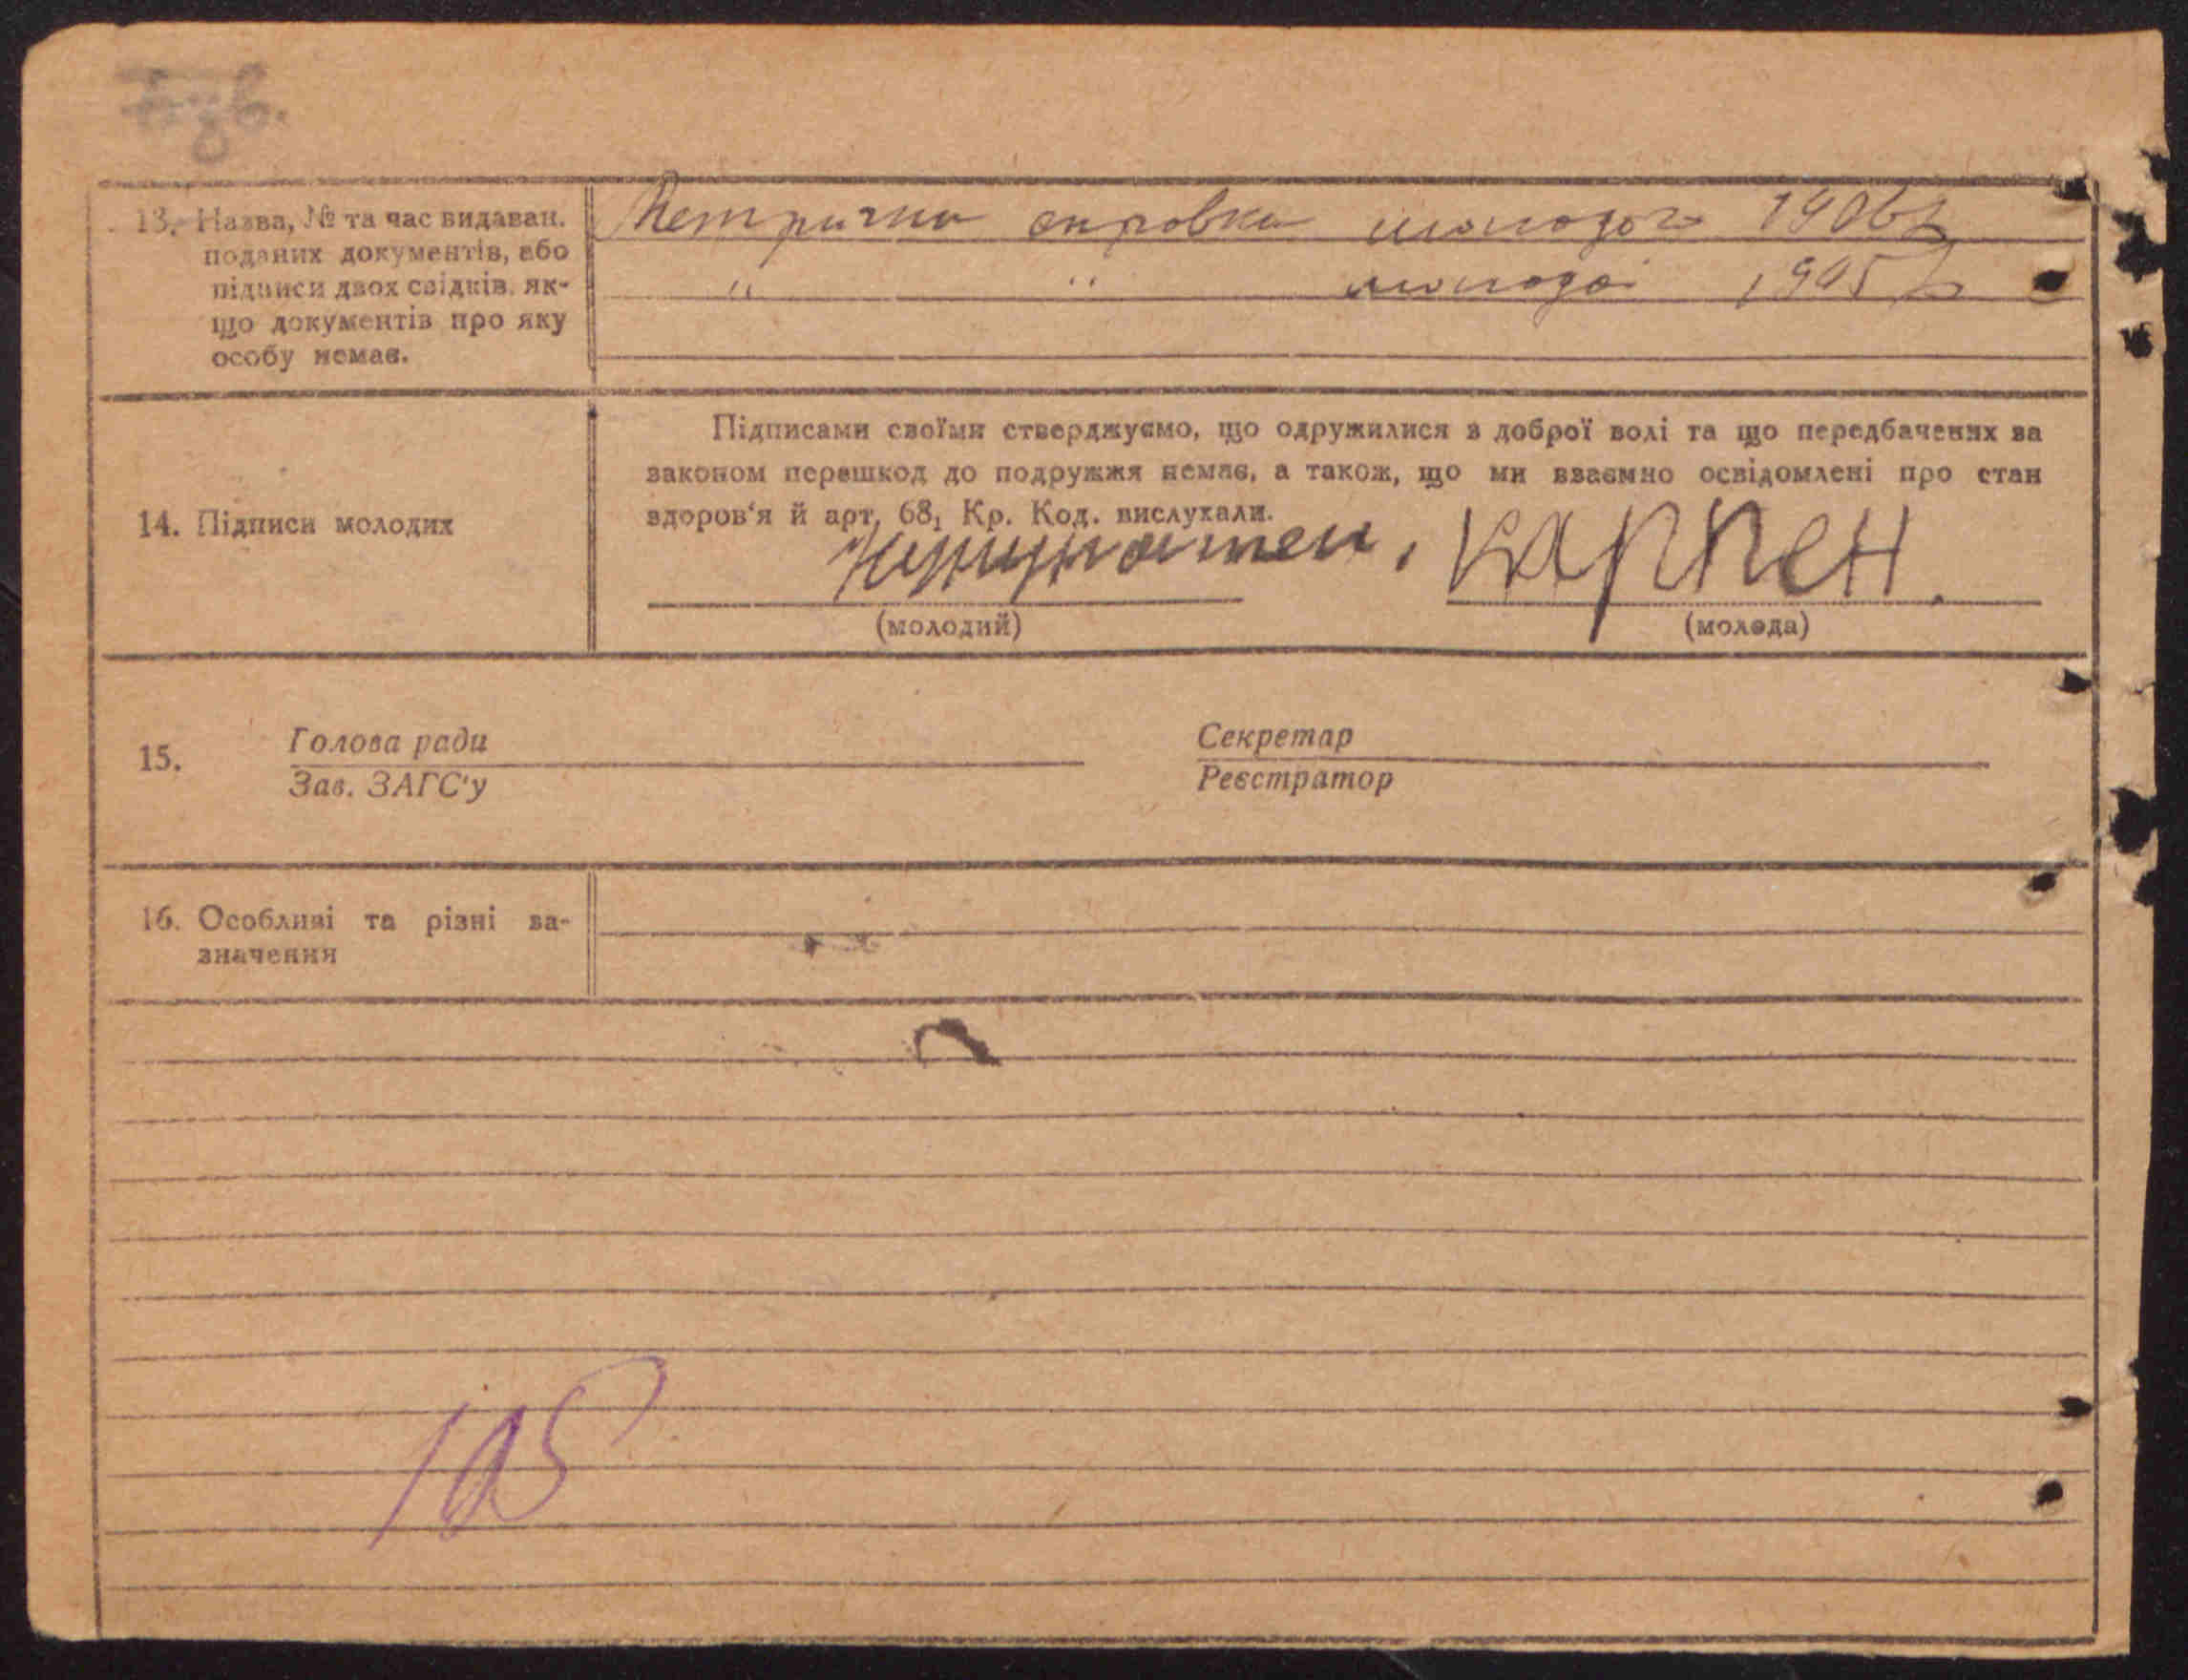 13. Назва, № та час видаван.
поданих документів, або
підписи двох свідків, як-
що документів про яку
особу немає.
Метрична справка молодого 1906 р
" " молодої 1905 р
14. Підписи молодих
Підписами своїми стверджуємо, що одружилися з доброї волі та що передбачених за
законом перешкод до подружжя немає, а також, що ми взаємно освідомлені про стан
здоров'я й арт. 68, Кр. Код. вислухали.
Карпен
(молодий) (молода)
15. Голова ради Секретар
Зав. ЗАГС'у Реєстратор
16. Особливі та різні за-
значення
105